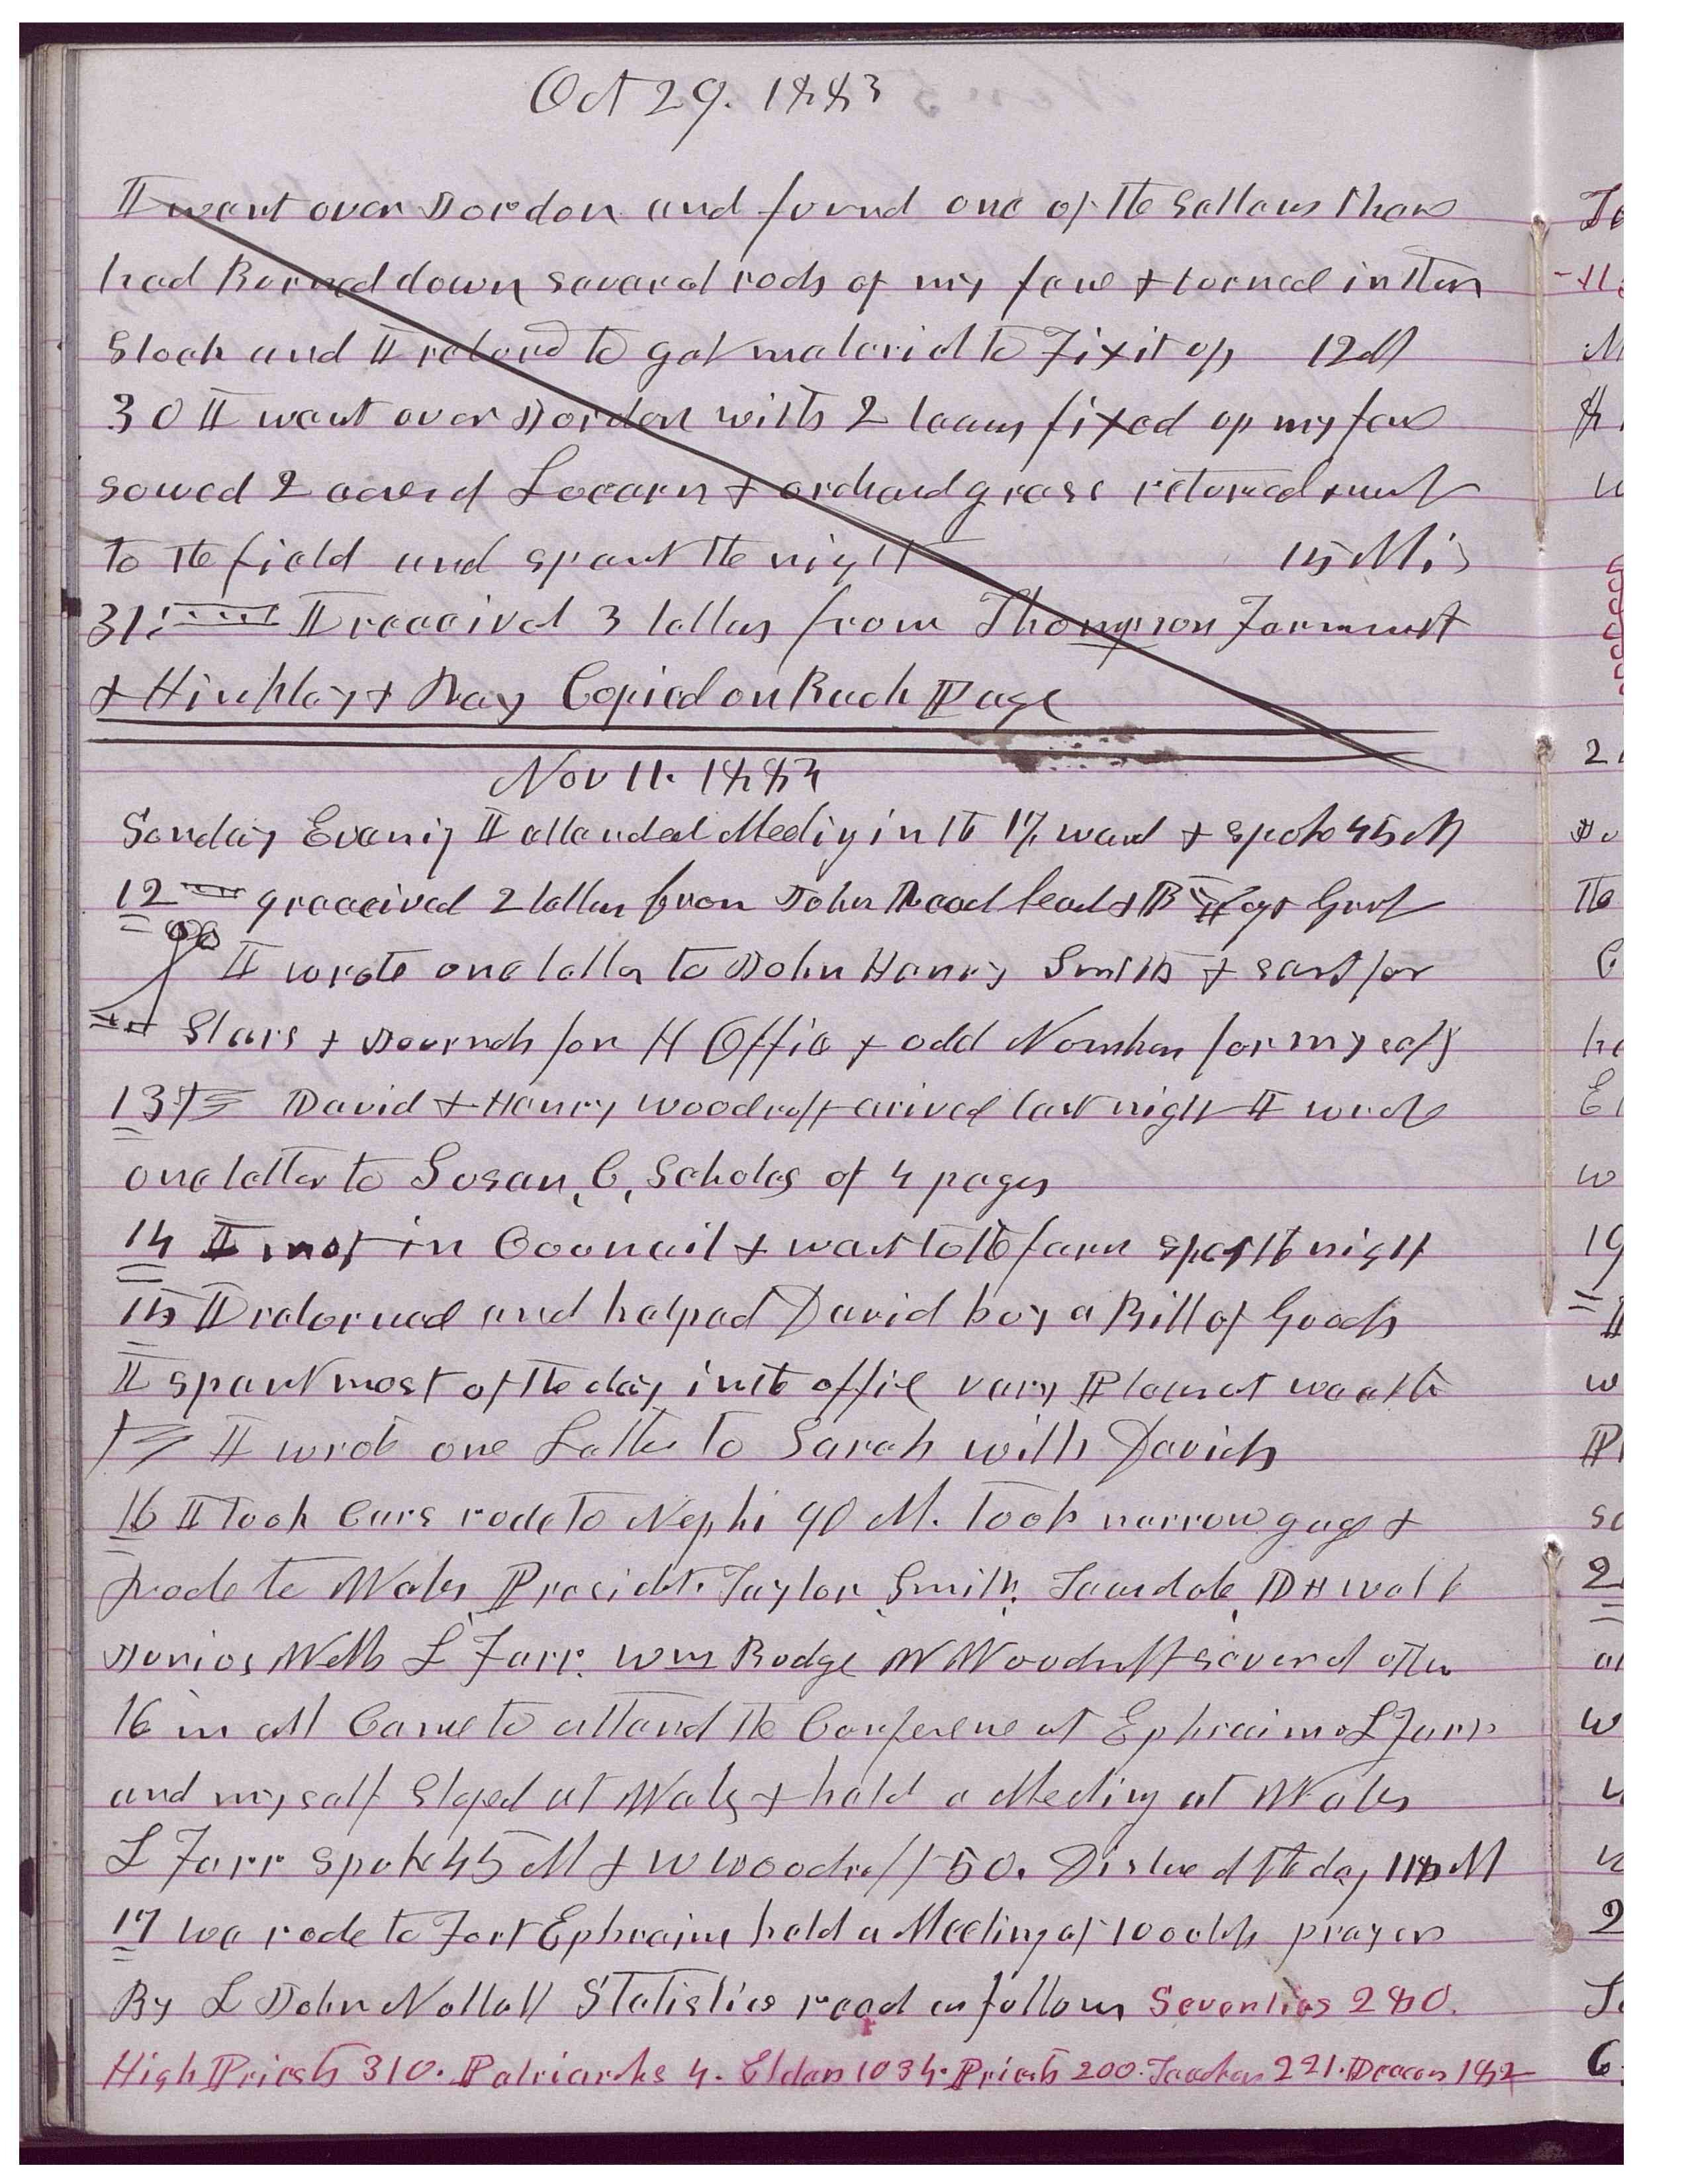 Oct 29. 1883
I went over Jordon and found one of the settlers there
had Burned down several rods of my fence & turned in their
Stock and I returnd to get material to Fix it up 12 M
30 I went over Jordon with 2 teams fixed up my fence
sowed 2 acres of Lucern & orchard grass returned & went
to the field and spent the night 15 Mi
31. I received 3 letters from Thompson Farnsworth
& Hinkley & Day Copied on Back Page
Nov 11. 1883
Sunday Evenig I attended Meeting in the 17 ward & spoke 45 M
12 I received 2 letters from John Mccad &
I wrote one letter to John Henry Smith & sent for
Stars & Journals for H Office & odd Numbers for myself
13 David & Henry Woodruff arived last night I wrote
one letter to Susan, C, Scholes of 4 pages
14 I met in Council & went to the farm spent the night
15 I returned and helped David buy a Bill of Goods
I spent most of the day in the office vary Pleasent weather
I wrote one Letter to Sarah with Davids
16 I took Cars rode to Nephi 90 M. took narrow guage &
rode to Wales Presidet. Taylor, Smith, Teasdale, D H Wells
Junior Wells L Farr. Wm Budge W Woodruff several others
16 in all Came to attend the Conferene at Ephraim L Farr
and myself Stoped at Wales & held a Meeting at Wales
L Farr spoke 45 M & W Woodruff 50. Distance of the day 115 M
17 we rode to Fort Ephraim held a Meeting at 10 oclok prayer
By L John Nuttall Statistics read as follows Seventies 280.
High Priests 310. Patriarchs 4. Elders 1034. Priests 200. Teachers 221. Deacons 182